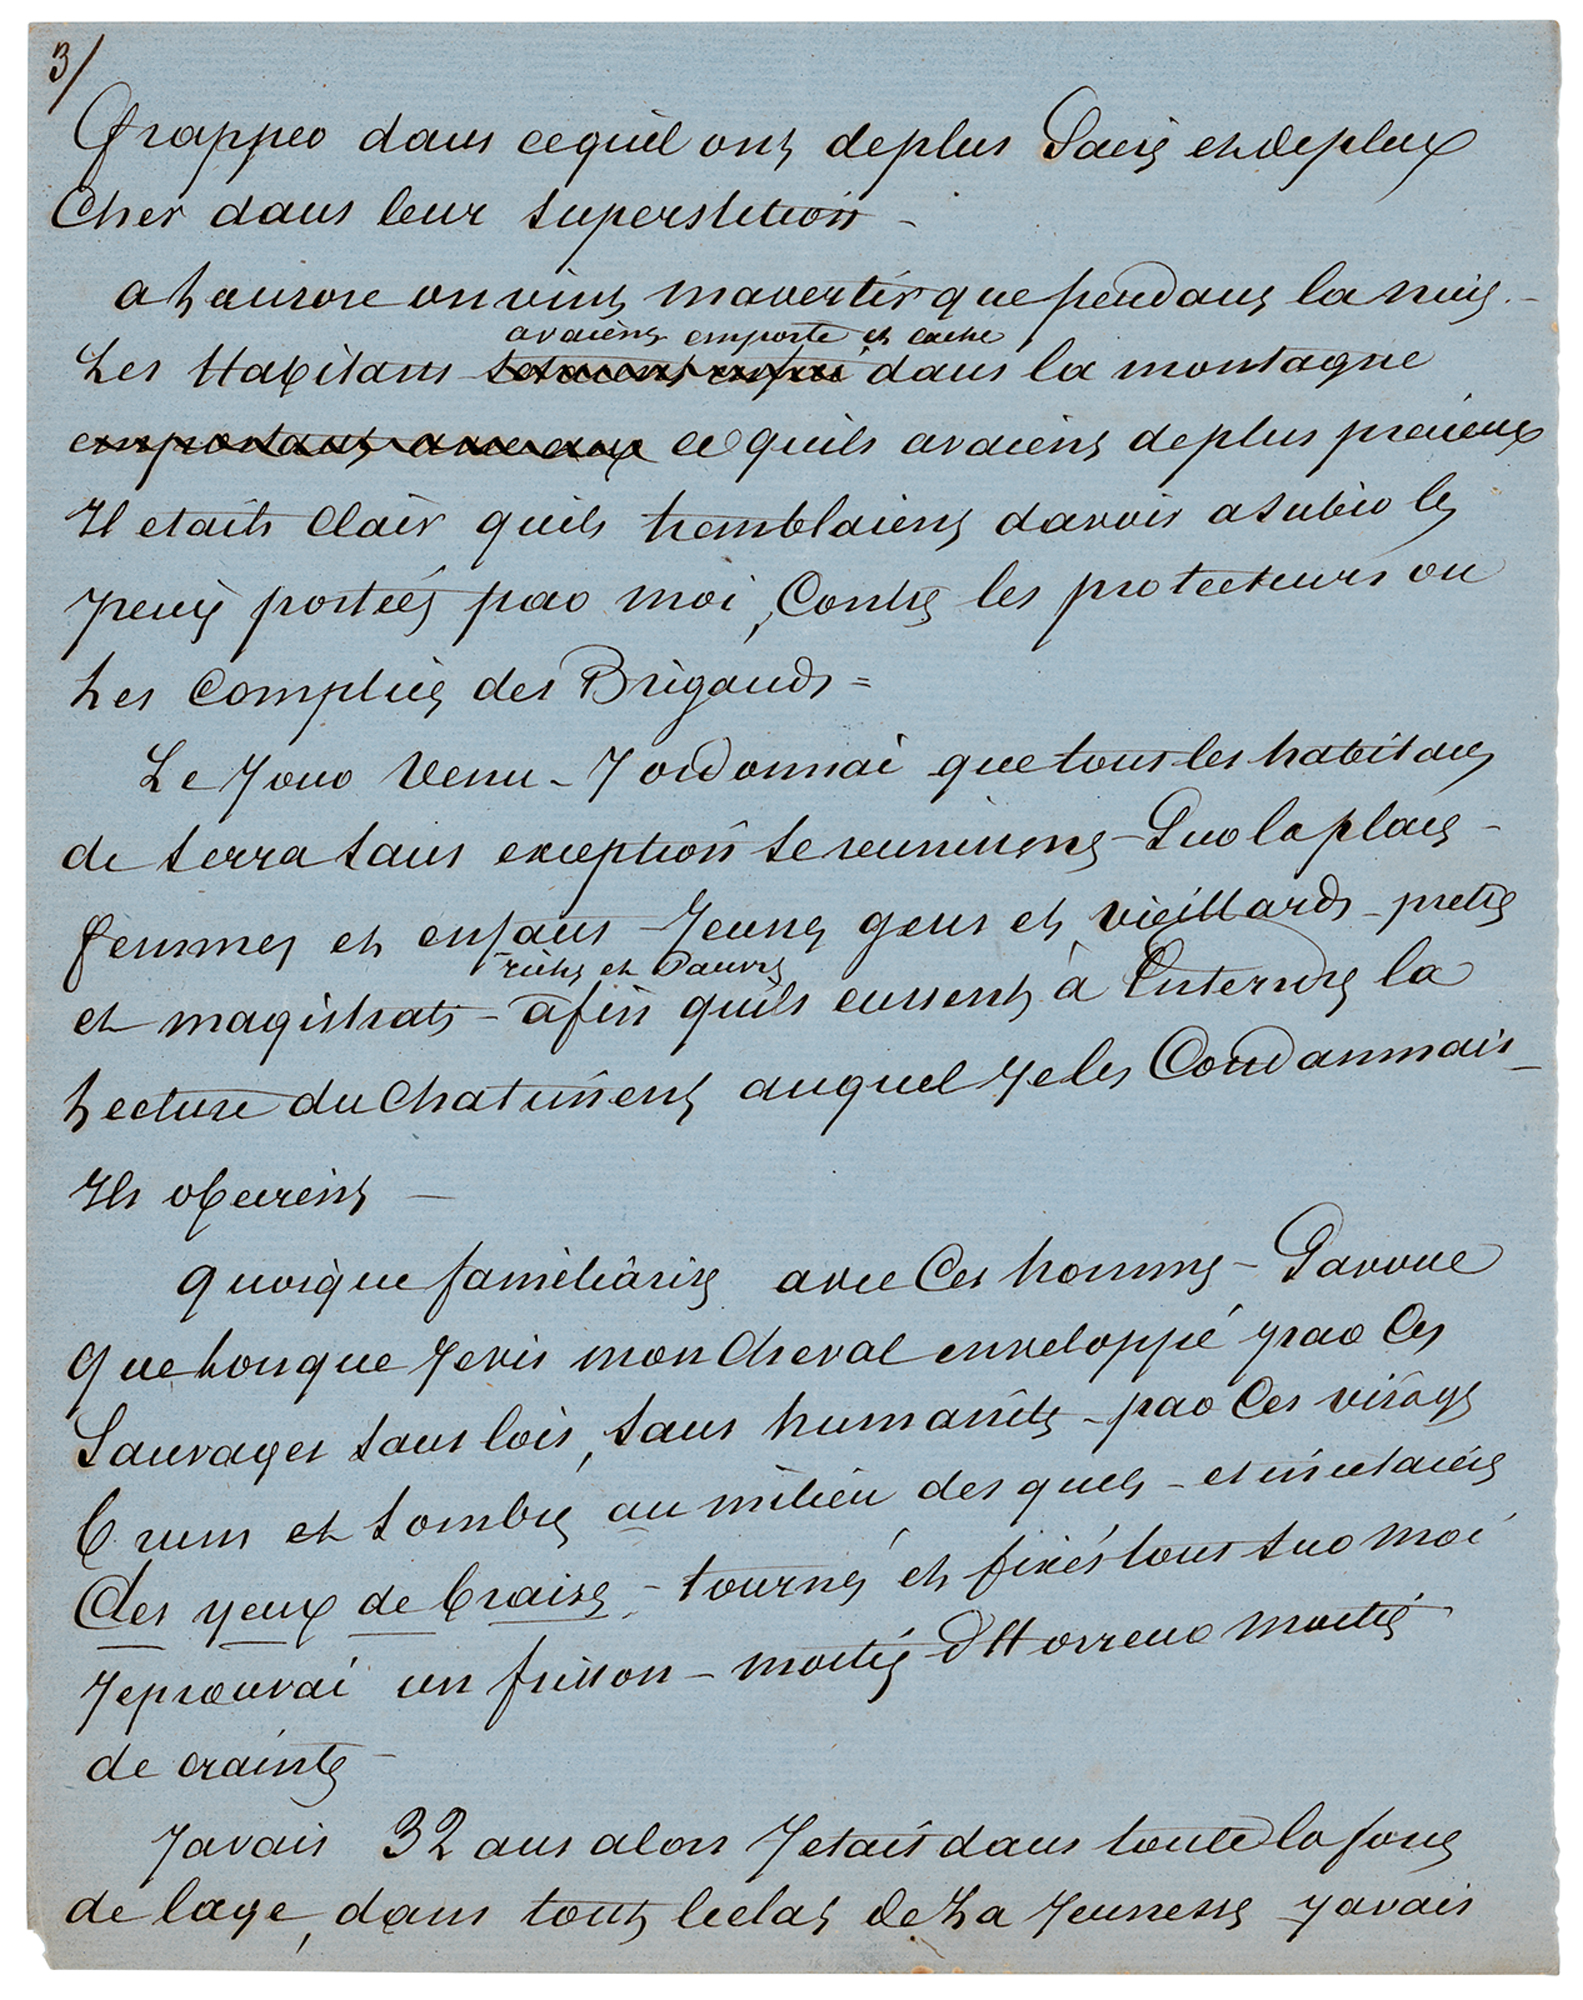 3/
frapper dans cequil ont deplus Sacré etdeplus
Cher dans leur superstition -
a Laurore onvint mavertir que pendant la nuit -
avaient emporté et caché
Les Habitans setaient enfui dans la montagne
emportant avec eux ce quils avaient deplus précieux
Il etaits Clair quils tremblaient davoir asubir les
peines portées par moi, Contre les protecteurs ou
Les Complices des Brigands =
Le Jour Venu - Jordonnai que tous les habitans
de Serra sans exception se reunissent - Sur la place -
femmes et enfans - Jeunes gens et vieillards - pretres
riches et Pauvres
et magistrats - afin quils eussent à Entendre la
Lecture du Chatiment auquel Je les Condamnais -
Ils obeirent -
quoique familiârisé avec Ces hommes - Javoue
que Lorsque Jevis mon Cheval enveloppé par Ces
Sauvages sans lois, sans humanité - par Ces visages
bruns et sombres au milieu des quels - etincelaient
des yeux de braise - tournés et fixés tous sur moi
Jeprouvai un frisson - moitié dHorreur moitié
de crainte -
Javais 32 ans alors Jetais dans toute la force
de lage, dans tout leclat de La Jeunesse Javais